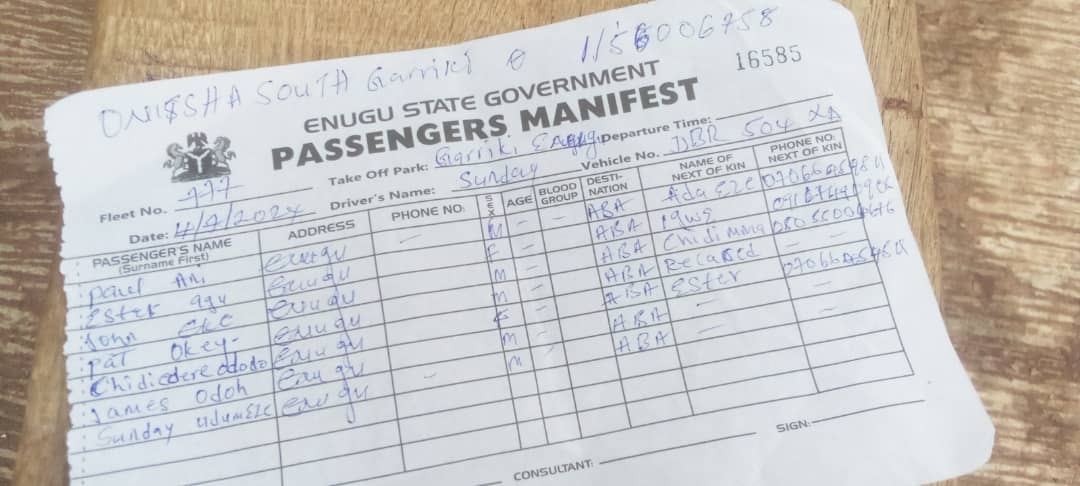 ONISHA SOUTH Garriki
16585
ENUGU STATE GOVERNMENT
PASSENGERS MANIFEST
Fleet No. 777 Take Off Park: Garriki Departure Time:
Date: 4/4/2024 Driver's Name: Sunday Vehicle No. DBR 504 XA
PASSENGER'S NAME (Surname First) ADDRESS PHONE NO. SEX AGE BLOOD GROUP DESTI-NATION NAME OF NEXT OF KIN PHONE NO: NEXT OF KIN
Paul Ani enugu — M — — ABA Ada Eze
Ester agu Enugu F — ABA Igwe
John eke enugu M — ABA Chidimma
Pat Okey- enugu M — ABA — —
Chidiedere ododo enugu F — ABA Ester
James Odoh enugu M — ABA — —
Sunday udumeze enugu — M ABA —
CONSULTANT: SIGN: